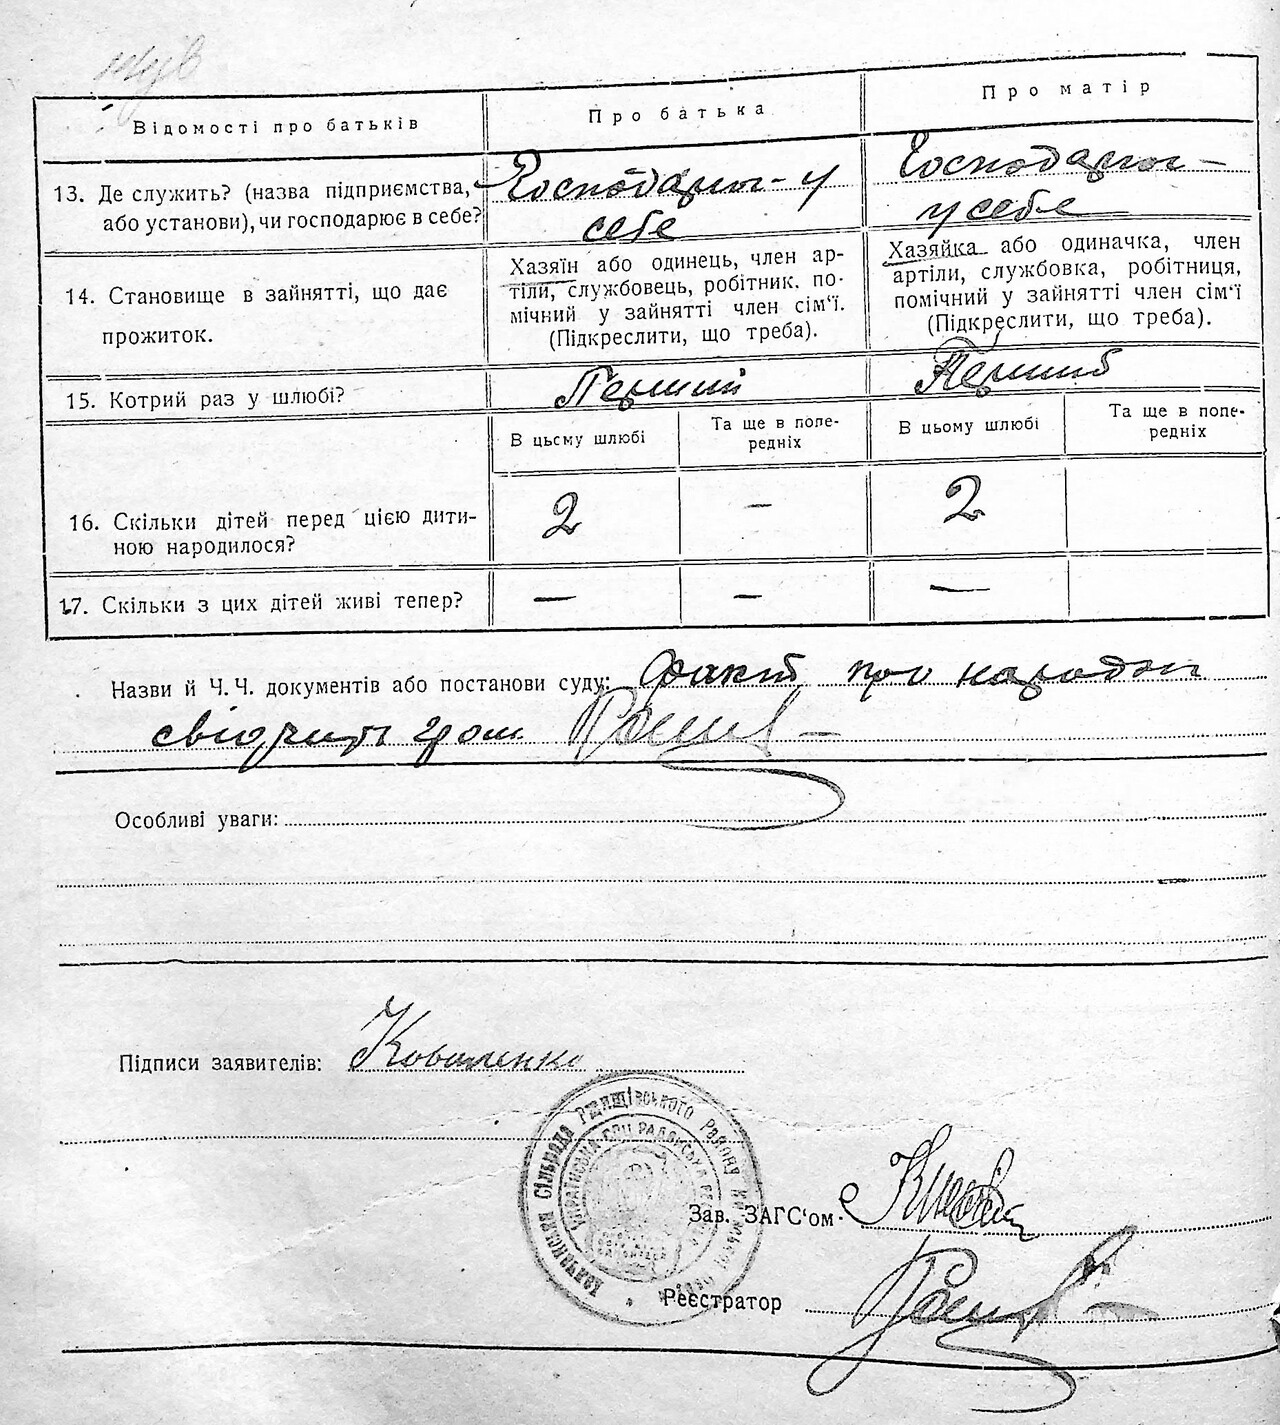 Відомості про батьків
Про батька
Про матір
13. Де служить? (назва підприємства,
або установи), чи господарює в себе?
Господарює - у
себе
Господарює -
у себе
14. Становище в зайнятті, що дає
прожиток.
Хазяїн або одинець, член ар-
тіли, службовець, робітник. по-
мічний у зайнятті член сім'ї.
(Підкреслити, що треба).
Хазяйка або одиначка, член
артіли, службовка, робітниця,
помічний у зайнятті член сім'ї
(Підкреслити, що треба).
15. Котрий раз у шлюбі?
Перший
Перший
В цьому шлюбі
Та ще в попе-
редніх
В цьому шлюбі
Та ще в попе-
редніх
16. Скільки дітей перед цією дити-
ною народилося?
2
–
2
17. Скільки з цих дітей живі тепер?
—
—
—
Назви й Ч. Ч. документів або постанови суду: Факт про народж
свідчить гром.
Особливі уваги:
Підписи заявителів: Коваленко
Сільрада Ржищівського Району
Українська Соц Радянська
Зав. ЗАГС'ом
Реєстратор